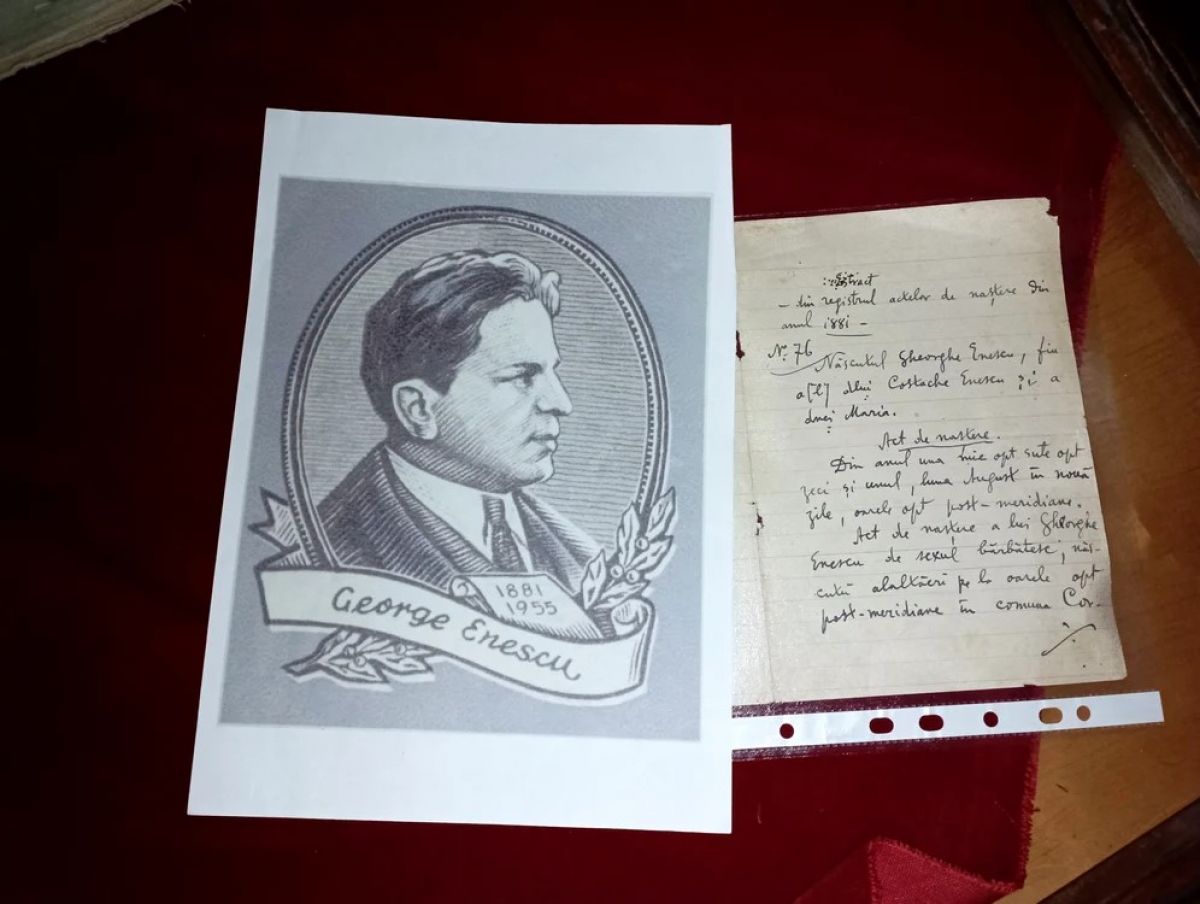 George Enescu
1881
1955
Extract
- din registrul actelor de naștere din
anul 1881 -
No. 76
Născutul Gheorghe Enescu, fiu
a[l] dlui Costache Enescu și a
dnei Maria.
Act de naștere.
Din anul una mie opt sute opt
zeci și unul, luna August în nouă
zile, oarele opt post-meridiane.
Act de naștere a lui Gheorghe
Enescu de sexul bărbătesc, năs-
cutŭ alaltăeri pe la oarele opt
post-meridiane în comuna Cor-